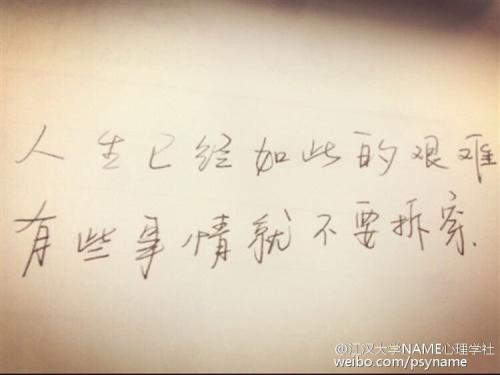 人生已经如此的艰难
有些事情就不要拆穿.
@江汉大学NAME心理学社
weibo.com/psyname